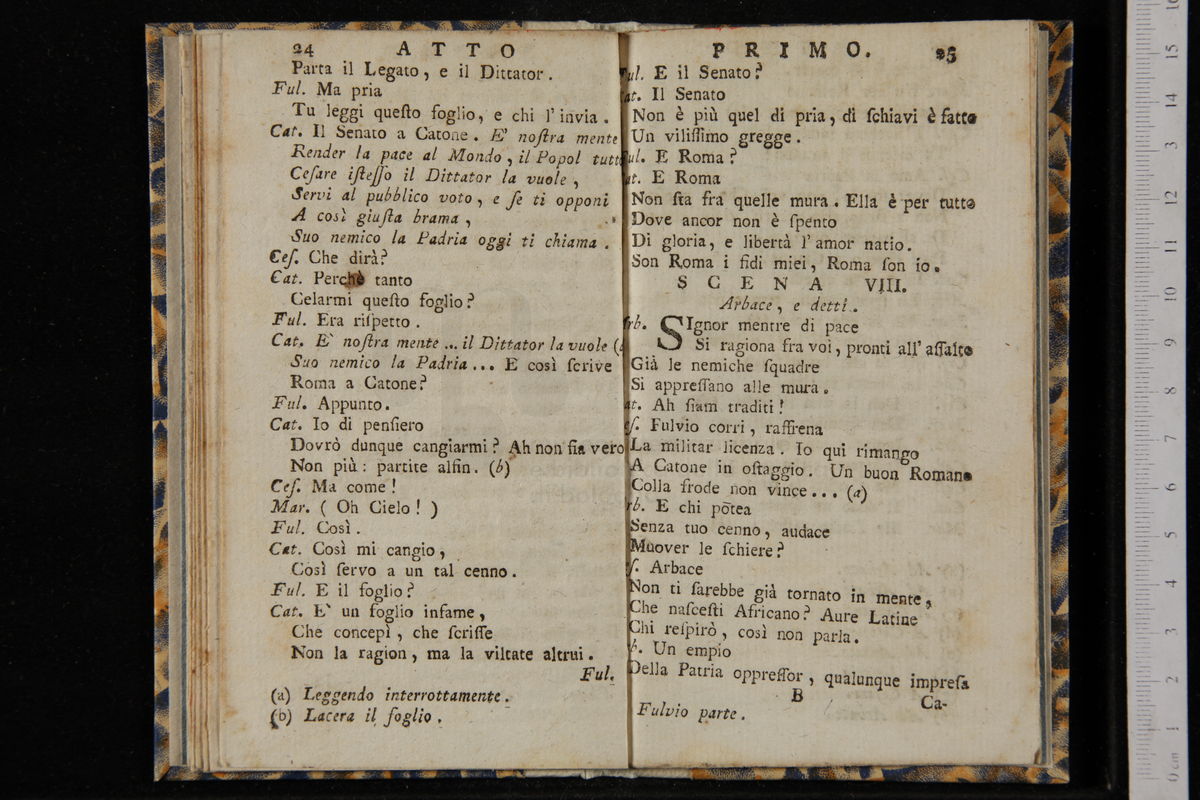 24 ATTO
Parta il Legato, e il Dittator.
Ful. Ma pria
Tu leggi queſto foglio, e chi l'invia.
Cat. Il Senato a Catone. E' noſtra mente
Render la pace al Mondo, il Popol tutto
Ceſare iſteſſo il Dittator la vuole,
Servi al pubblico voto, e ſe ti opponi
A così giuſta brama,
Suo nemico la Padria oggi ti chiama.
Ceſ. Che dirà?
Cat. Perchè tanto
Celarmi queſto foglio?
Ful. Era riſpetto.
Cat. E` noſtra mente ... il Dittator la vuole (
Suo nemico la Padria... E così ſcrive
Roma a Catone?
Ful. Appunto.
Cat. Io di penſiero
Dovrò dunque cangiarmi? Ah non ſia vero
Non più: partite alfin. (b)
Ceſ. Ma come!
Mar. ( Oh Cielo! )
Ful. Così.
Cat. Così mi cangio,
Così ſervo a un tal cenno.
Ful. E il foglio?
Cat. E` un foglio infame,
Che concepì, che ſcriſſe
Non la ragion, ma la viltate altrui.
Ful.
(a) Leggendo interrottamente.
(b) Lacera il foglio.
PRIMO. 25
ul. E il Senato?
at. Il Senato
Non è più quel di pria, di ſchiavi è fatto
Un viliſſimo gregge.
ul. E Roma?
at. E Roma
Non ſta fra quelle mura. Ella è per tutto
Dove ancor non è ſpento
Di gloria, e libertà l'amor natio.
Son Roma i fidi miei, Roma ſon io.
SCENA VIII.
Arbace, e detti.
rb. SIgnor mentre di pace
Si ragiona fra voi, pronti all'aſſalto
Già le nemiche ſquadre
Si appreſſano alle mura.
at. Ah ſiam traditi!
ſ. Fulvio corri, raffrena
La militar licenza. Io qui rimango
A Catone in oſtaggio. Un buon Romano
Colla frode non vince... (a)
rb. E chi potea
Senza tuo cenno, audace
Muover le ſchiere?
ſ. Arbace
Non ti ſarebbe già tornato in mente,
Che naſceſti Africano? Aure Latine
Chi reſpirò, così non parla.
b. Un empio
Della Patria oppreſſor, qualunque impreſa
B Ca-
Fulvio parte.